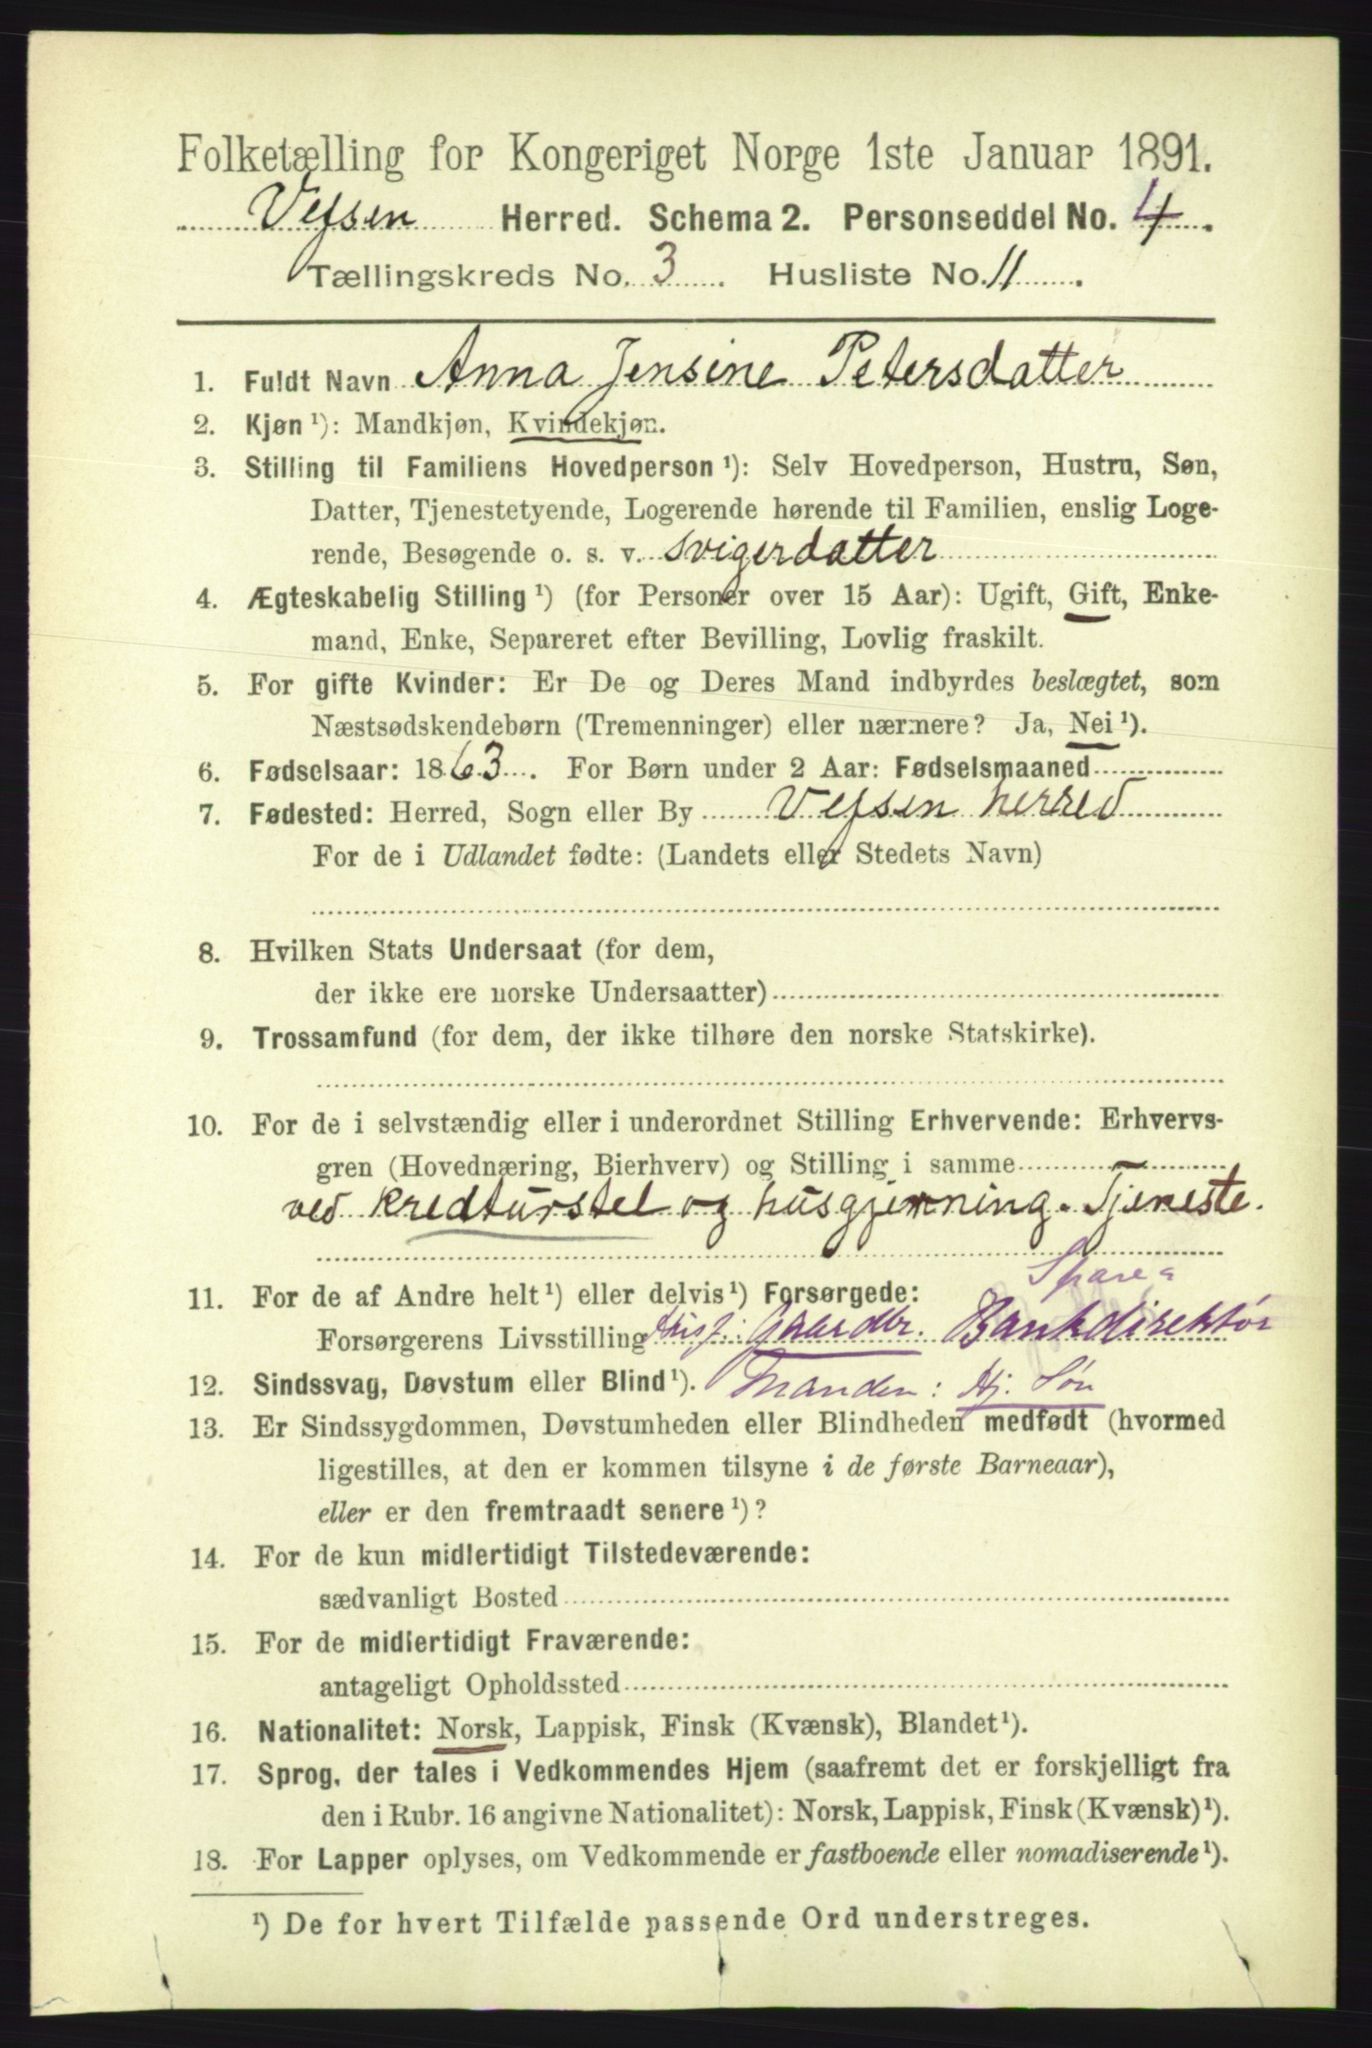 Folketælling for Kongeriget Norge 1ste Januar 1891.
Vefsen Herred. Schema 2. Personseddel No. 4.
Tællingskreds No. 3. Husliste No. 11.
1. Fuldt Navn Anna Jensine Petersdatter
2. Kjøn ¹): Mandkjøn, Kvindekjøn.
3. Stilling til Familiens Hovedperson ¹): Selv Hovedperson, Hustru, Søn,
Datter, Tjenestetyende, Logerende hørende til Familien, enslig Loge-
rende, Besøgende o. s. v. svigerdatter
4. Ægteskabelig Stilling ¹) (for Personer over 15 Aar): Ugift, Gift, Enke-
mand, Enke, Separeret efter Bevilling, Lovlig fraskilt.
5. For gifte Kvinder: Er De og Deres Mand indbyrdes beslægtet, som
Næstsødskendebørn (Tremenninger) eller nærmere? Ja, Nei ¹).
6. Fødselsaar: 1863. For Børn under 2 Aar: Fødselsmaaned
7. Fødested: Herred, Sogn eller By Vefsen herred
For de i Udlandet fødte: (Landets eller Stedets Navn)
8. Hvilken Stats Undersaat (for dem,
der ikke ere norske Undersaatter)
9. Trossamfund (for dem, der ikke tilhøre den norske Statskirke).
10. For de i selvstændig eller i underordnet Stilling Erhvervende: Erhvervs-
gren (Hovednæring, Bierhverv) og Stilling i samme
ved kredturstel og husgjerning. Tjeneste.
11. For de af Andre helt ¹) eller delvis ¹) Forsørgede:
Spare=
Forsørgerens Livsstilling Gaardbr. Bankdirektør
12. Sindssvag, Døvstum eller Blind ¹). Manden: Hj. Søn
13. Er Sindssygdommen, Døvstumheden eller Blindheden medfødt (hvormed
ligestilles, at den er kommen tilsyne i de første Barneaar),
eller er den fremtraadt senere ¹)?
14. For de kun midlertidigt Tilstedeværende:
sædvanligt Bosted
15. For de midlertidigt Fraværende:
antageligt Opholdssted
16. Nationalitet: Norsk, Lappisk, Finsk (Kvænsk), Blandet ¹).
17. Sprog, der tales i Vedkommendes Hjem (saafremt det er forskjelligt fra
den i Rubr. 16 angivne Nationalitet): Norsk, Lappisk, Finsk (Kvænsk) ¹).
18. For Lapper oplyses, om Vedkommende er fastboende eller nomadiserende ¹).
¹) De for hvert Tilfælde passende Ord understreges.